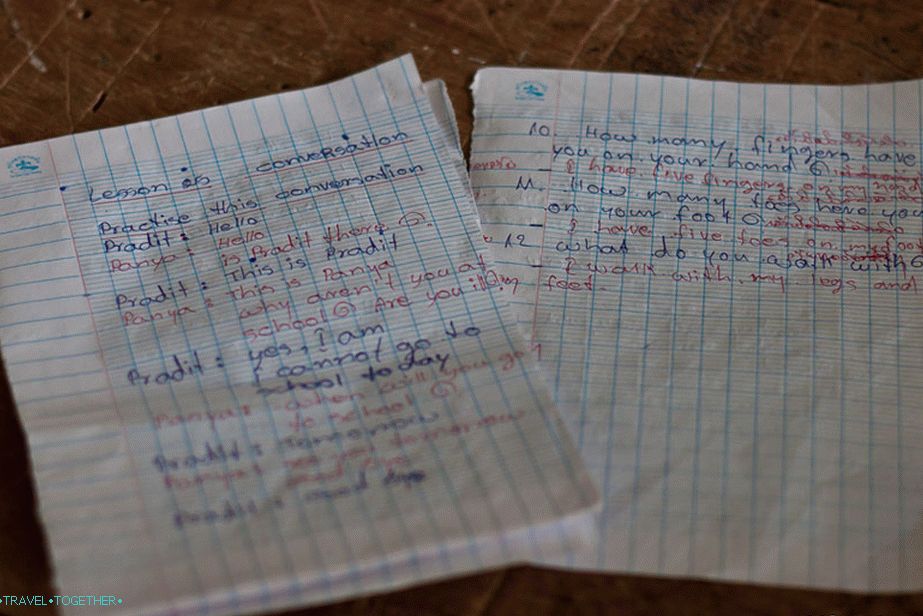 Lesson conversation
Practise this conversation
Pradit : Hello
Panya : Hello
is Pradit there?
Pradit : This is Pradit
Panya : This is Panya
why aren't you at
school? Are you ill?
Pradit : yes, I am
I cannot go to
school today
Panya: when will you go
to school?
Pradit : tomorrow
Panya: tomorrow
Pradit :
10. How many fingers have
you on your hand?
- I have five fingers on my hand
11. How many toes have you
on your foot?
- I have five toes on my foot
12 what do you with?
- I walk with my legs and
feet.
TRAVEL•TOGETHER